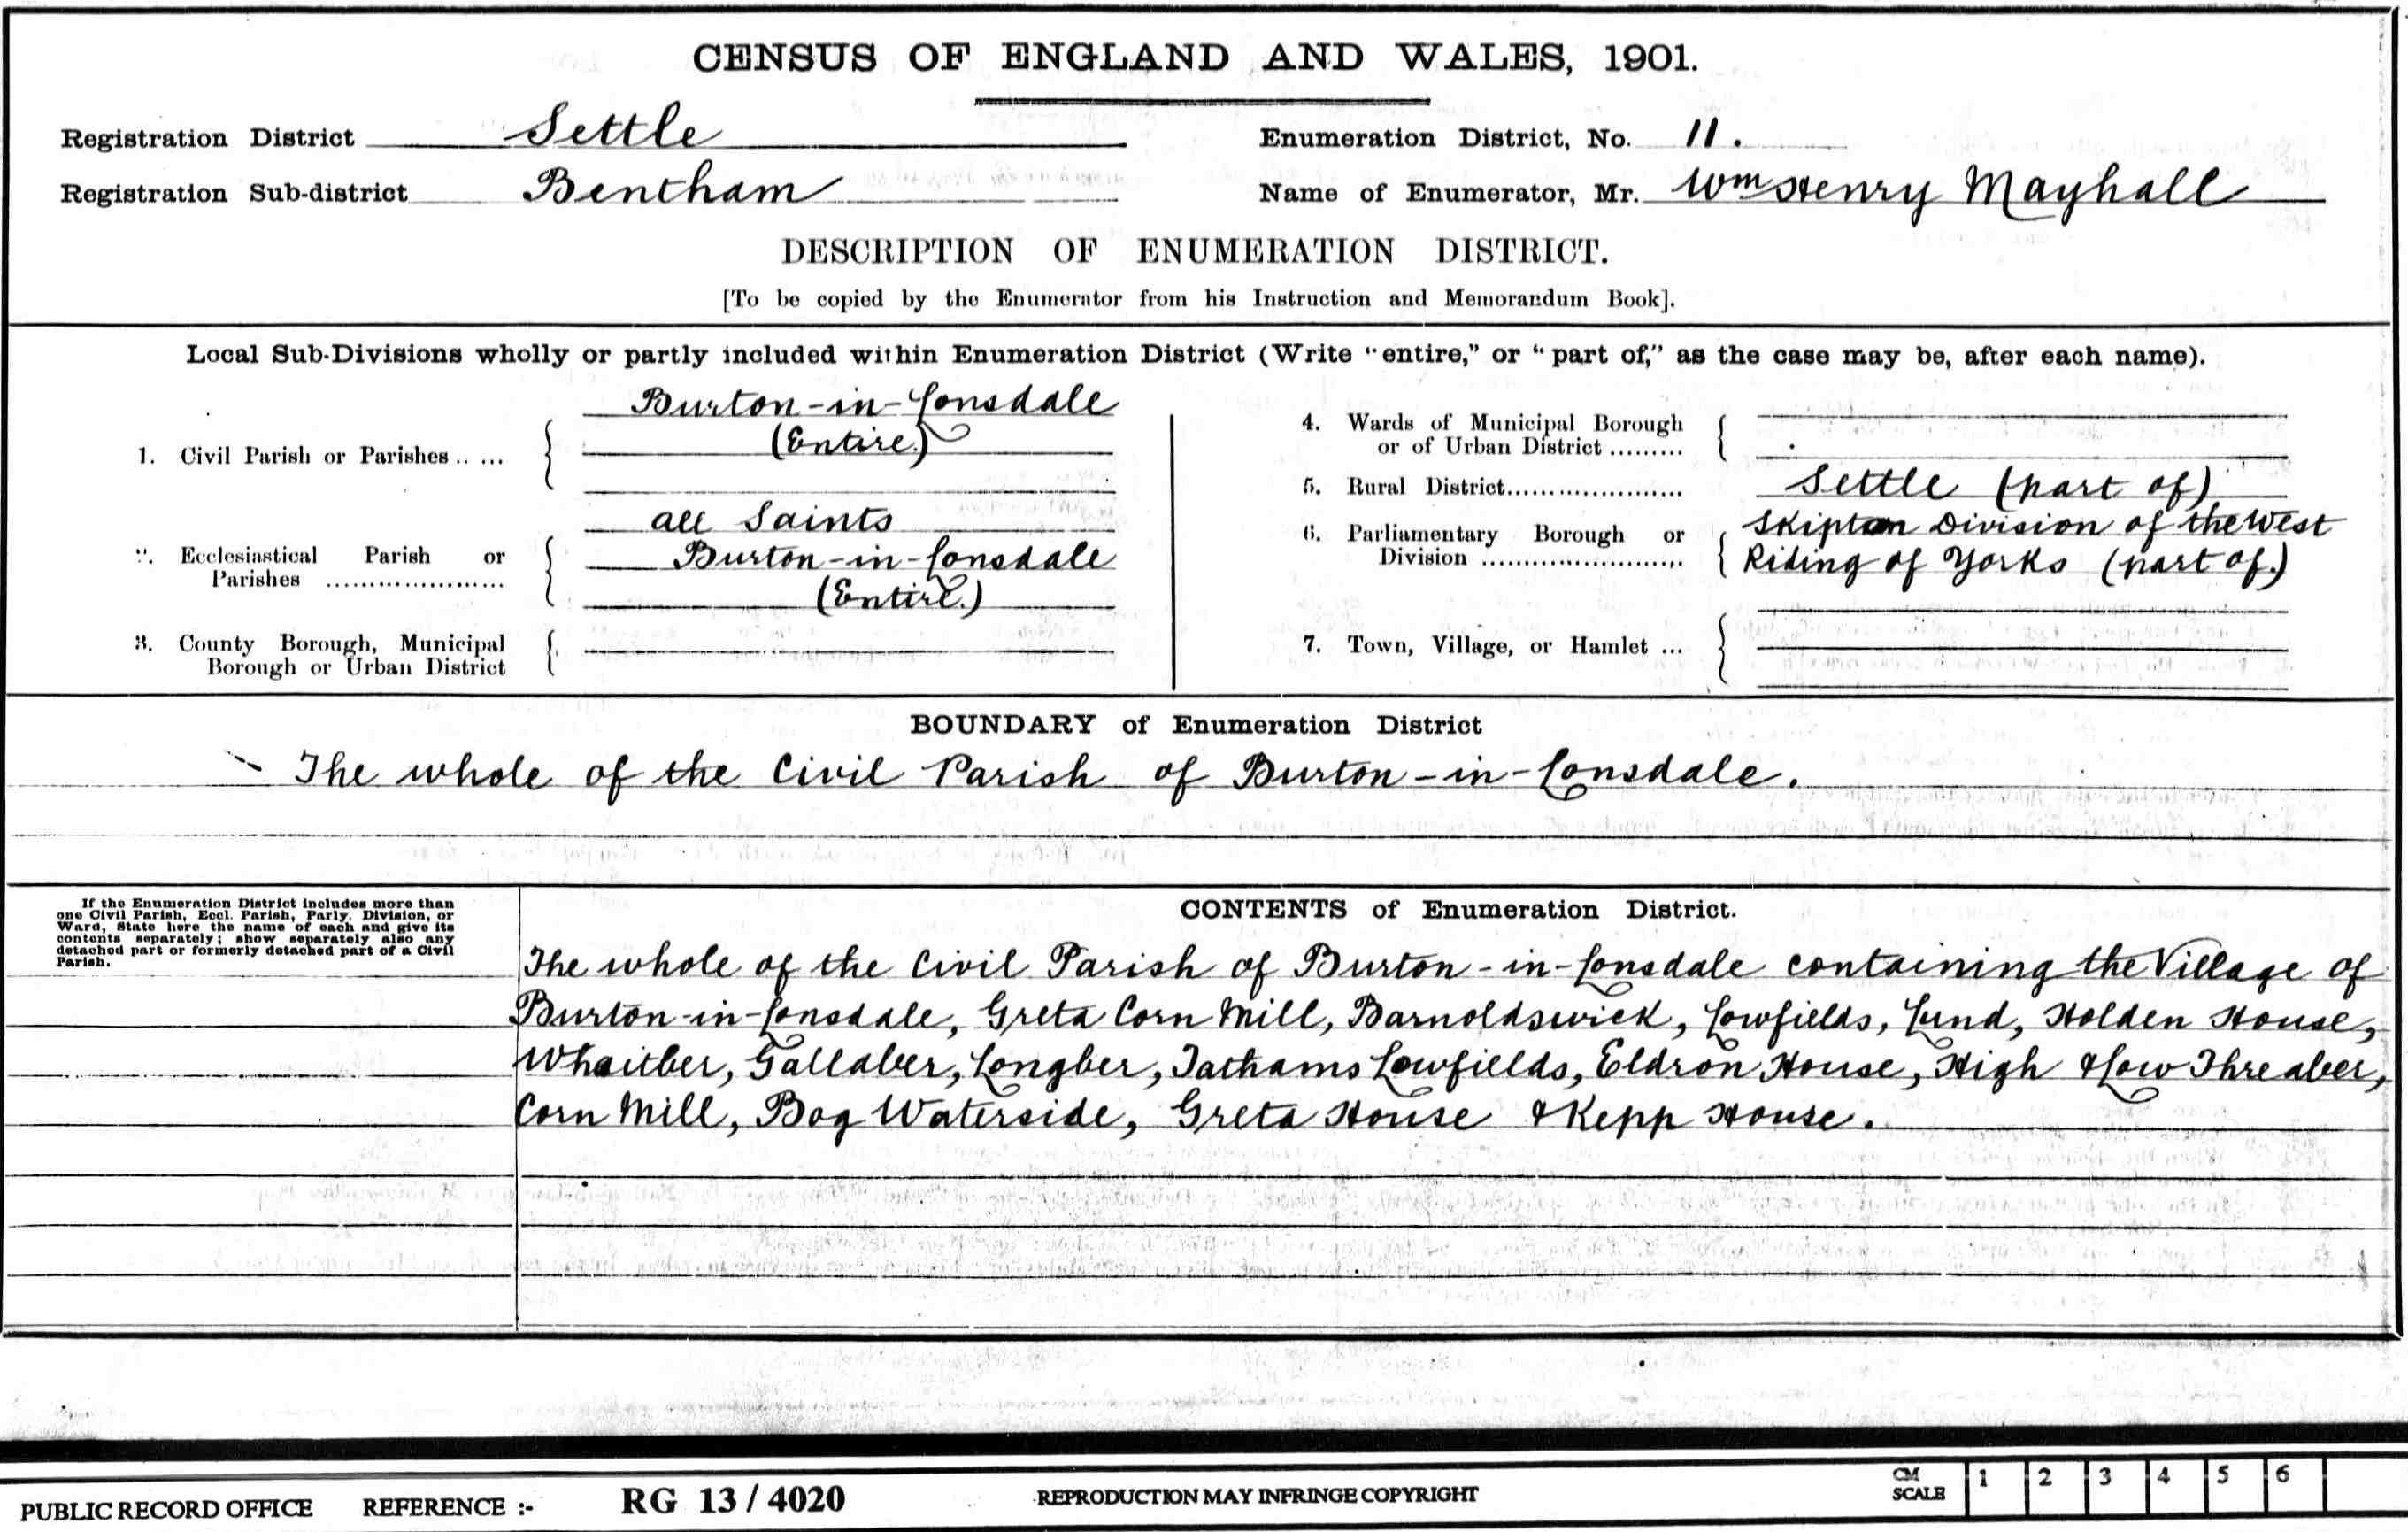 CENSUS OF ENGLAND AND WALES, 1901.
Registration District Settle
Enumeration District, No. 11.
Registration Sub-district Bentham
Name of Enumerator, Mr. Wm Henry Mayhall
DESCRIPTION OF ENUMERATION DISTRICT.
[To be copied by the Enumerator from his Instruction and Memorandum Book].
Local Sub-Divisions wholly or partly included within Enumeration District (Write "entire," or "part of," as the case may be, after each name).
1. Civil Parish or Parishes .. ...
Burton-in-Lonsdale
(Entire.)
2. Ecclesiastical Parish or
Parishes ....................
all Saints
Burton-in-Lonsdale
(Entire.)
3. County Borough, Municipal
Borough or Urban District
4. Wards of Municipal Borough
or of Urban District .........
5. Rural District...................... Settle (part of)
6. Parliamentary Borough or
Division .........................
Skipton Division of the West
Riding of Yorks (part of.)
7. Town, Village, or Hamlet ...
BOUNDARY of Enumeration District
The whole of the Civil Parish of Burton-in-Lonsdale.
If the Enumeration District includes more than
one Civil Parish, Eccl. Parish, Parly. Division, or
Ward, State here the name of each and give its
contents separately; show separately also any
detached part or formerly detached part of a Civil
Parish.
CONTENTS of Enumeration District.
The whole of the Civil Parish of Burton-in-Lonsdale containing the Village of
Burton-in-Lonsdale, Greta Corn Mill, Barnoldswick, Lowfields, Lund, Holden House,
Whaitber, Gallaber, Longber, Tathams Lowfields, Eldron House, High & Low Threaber,
Corn Mill, Bog Waterside, Greta House & Kepp House.
PUBLIC RECORD OFFICE REFERENCE :- RG 13 / 4020 REPRODUCTION MAY INFRINGE COPYRIGHT
CM
SCALE
1 2 3 4 5 6